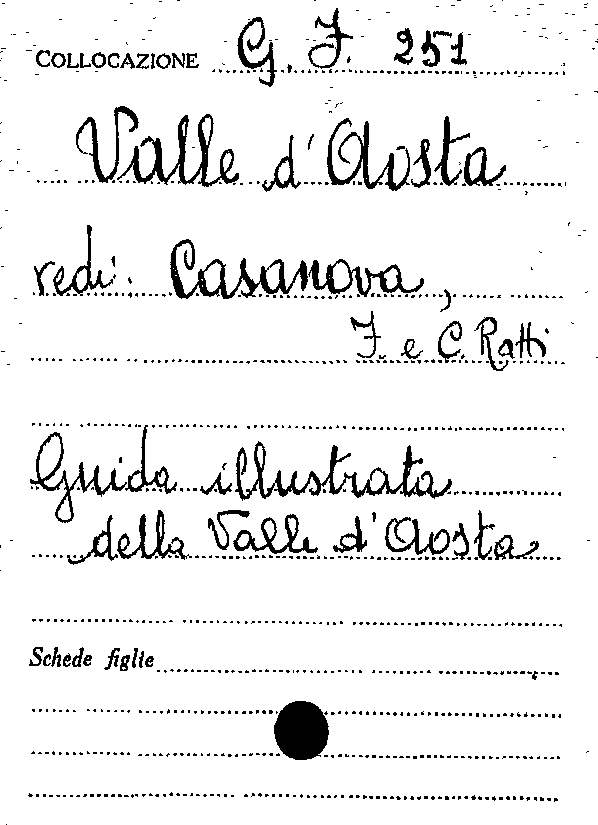 COLLOCAZIONE G. F. 251
Valle d'Aosta
vedi: Casanova,
F. e C. Ratti
Guida illustrata
della Valle d'Aosta
Schede figlie